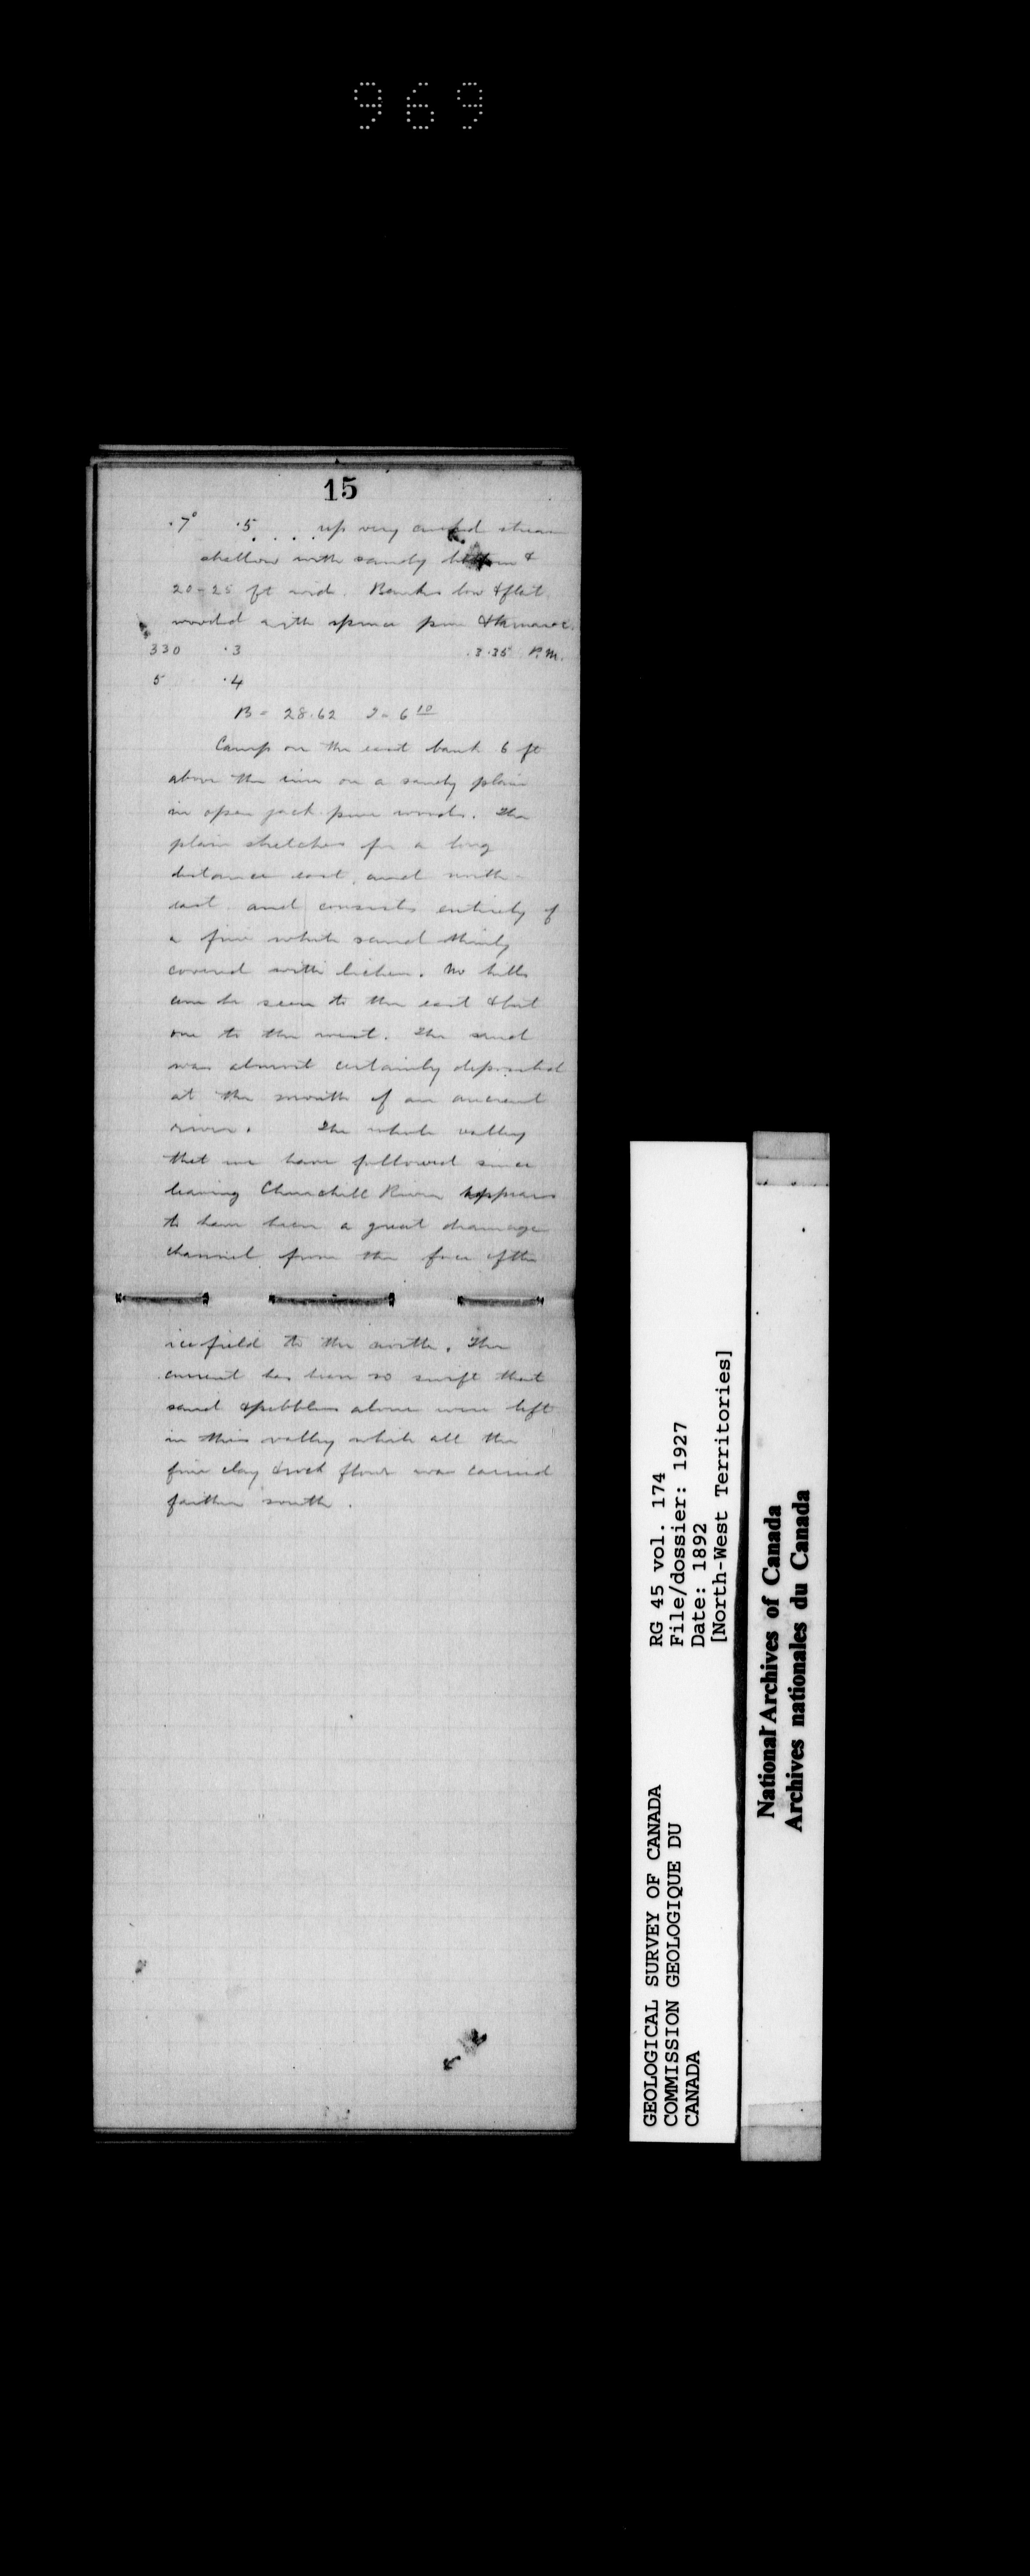 969
15
.7° .5 .... up very crooked stream
shallow with sandy bottom &
20-25 ft wid. Banks low & flat
wooded with spruce pine & tamarac.
330 .3 3.35 P.M.
5 .4
B = 28.62 6 10
Camp on the east bank 6 ft
above the river on a sandy plain
in open jack pine woods. The
plain stretches for a long
distance east, and north-
east and consists entirely of
a fine white sand thinly
covered with lichen. No hills
can be seen to the east & but
one to the west. The sand
was almost certainly deposited
at the mouth of an ancient
river. The whole valley
that we have followed since
leaving Churchill River appears
to have been a great drainage
channel from the face of the
icefield to the north. The
current has been so swift that
sand & pebbles alone were left
in this valley while all the
fine clay & rock flour was carried
farther south.
GEOLOGICAL SURVEY OF CANADA
COMMISSION GEOLOGIQUE DU
CANADA
RG 45 vol. 174
File/dossier: 1927
Date: 1892
[North-West Territories]
National Archives of Canada
Archives nationales du Canada